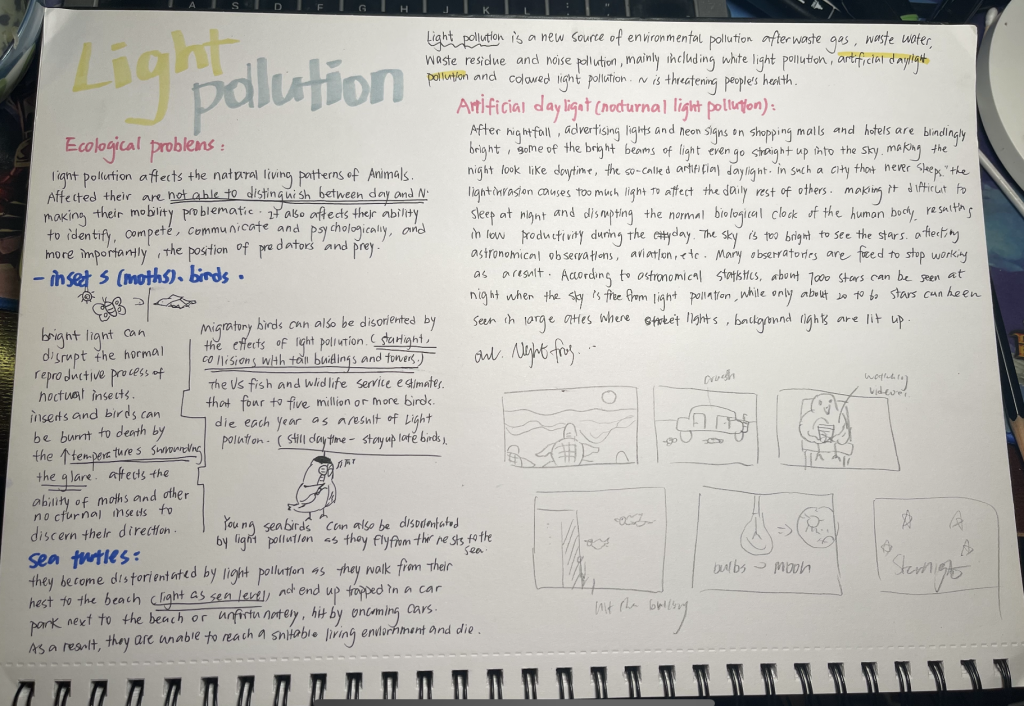 Light
pollution
Light pollution is a new source of environmental pollution after waste gas, waste water,
waste residue and noise pollution, mainly including white light pollution, artificial daylight
pollution and coloured light pollution. ~ is threatening people's health.
Artificial daylight (nocturnal light pollution):
After nightfall, advertising lights and neon signs on shopping malls and hotels are blindingly
bright, some of the bright beams of light even go straight up into the sky, making the
night look like daytime, the so-called artificial daylight. In such a city that never sleeps" the
light invasion causes too much light to affect the daily rest of others. making it difficult to
sleep at night and disrupting the normal biological clock of the human body, resulting
in low productivity during the day. The sky is too bright to see the stars. affecting
astronomical observations, aviation, etc. Many observatories are forced to stop working
as a result. According to astronomical statistics, about 7000 stars can be seen at
night when the sky is free from light pollution, while only about 20 to 60 stars can been
seen in large cities where street lights, background lights are lit up.
Ecological problems:
light pollution affects the natural living patterns of Animals.
Affected their are not able to distinguish between day and N.
making their mobility problematic. It also affects their ability
to identify, compete, communicate and psychologically, and
more importantly, the position of predators and prey.
- insects (moths). birds.
bright light can
disrupt the normal
reproductive process of
noctual insects.
insects and birds can
be burnt to death by
the ↑ temperatures surrounding
the glare. affects the
ability of moths and other
nocturnal insects to
discern their direction.
migratory birds can also be disoriented by
the effects of light pollution. (starlight,
collisions with tall buildings and towers.)
The US fish and wildlife service estimates.
that four to five million or more birds.
die each year as a result of Light
pollution. (still daytime - stay up late birds).
Young seabirds can also be disorientated
by light pollution as they fly from their nests to the
sea.
sea turtles:
they become distorientated by light pollution as they walk from their
nest to the beach (light as sea level), and end up trapped in a car
park next to the beach or unfortunately, hit by oncoming cars.
As a result, they are unable to reach a suitable living environment and die.
owl. Night-frog. ..
watching
bulbs → moon
Starlight
hit the building